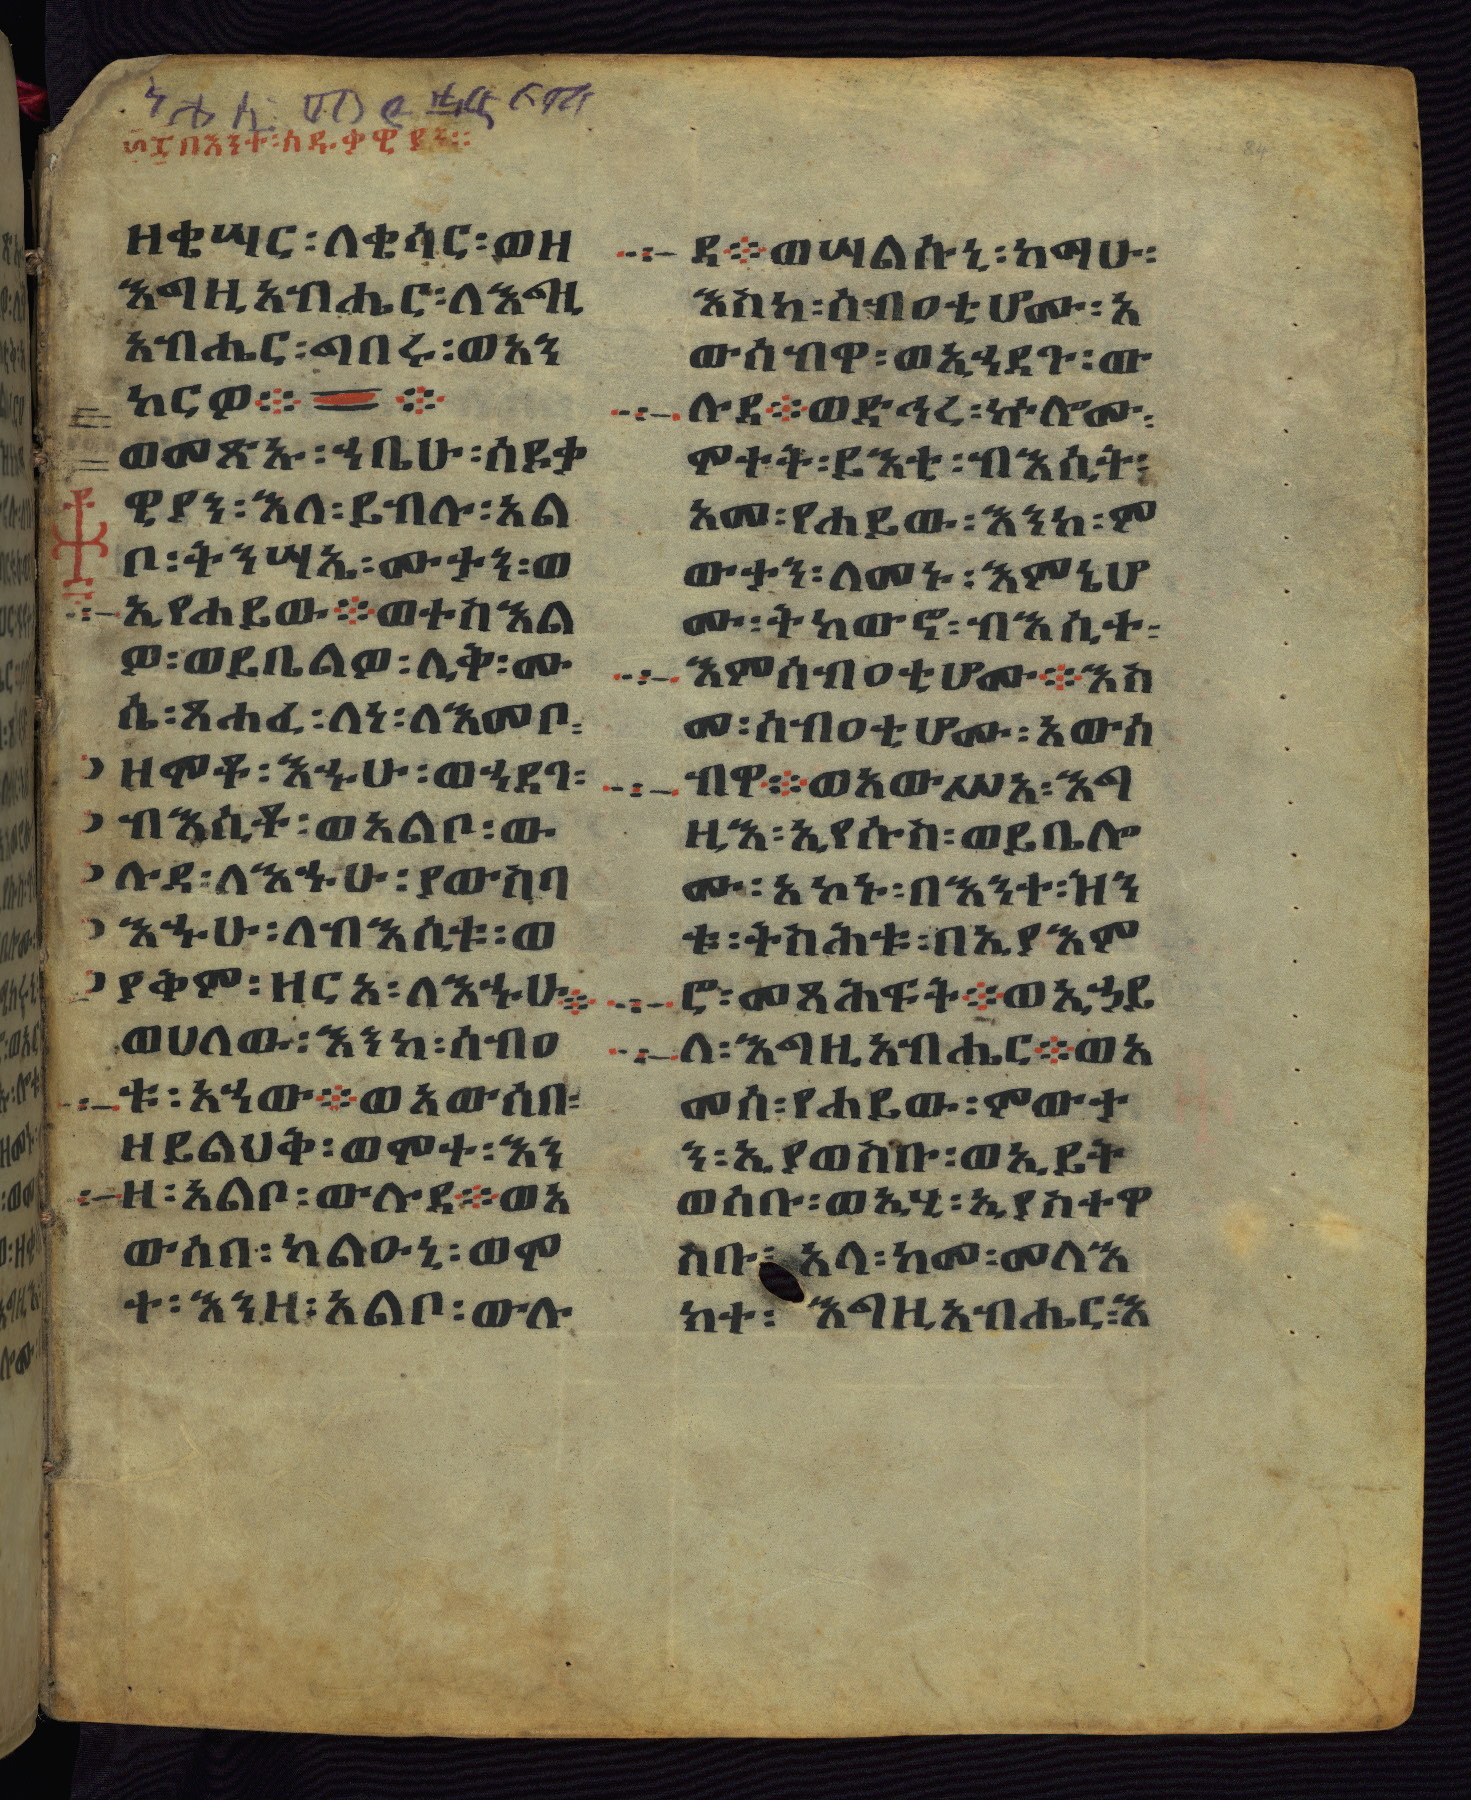 በእንተ፡ሰዱቃዊያን፡፡
84
ዘቄሣር፡ለቄሳር፡ወዘ
እግዚአብሔር፡ለእግዚ
አብሔር፡ግበሩ፡ወአን
ከርዎ፨ ፨
ወመጽኡ፡ኀቤሁ፡ሰዱቃ
ዊያን፡እለ፡ይብሉ፡አል
ቦ፡ትንሣኤ፡ሙታን፡ወ
ኢየሐይው፨ወተስእል
ዎ፡ወይቤልዎ፡ሊቅ፡ሙ
ሴ፡ጸሐፈ፡ለነ፡ለእመቦ፡
ዘሞቶ፡እኁሁ፡ወኀደገ፡
ብእሲቶ፡ወአልቦ፡ው
ሉደ፡ለእኁሁ፡ያውስባ
እኁሁ፡ለብእሲቱ፡ወ
ያቅም፡ዘርአ፡ለእኁሁ፨
ወሀለው፡እንከ፡ሰብዐ
ቱ፡አኀው፨ወአውሰበ፡
ዘይልህቅ፡ወሞተ፡እን
ዘ፡አልቦ፡ውሉደ፨ወአ
ውሰበ፡ካልዑኒ፡ወሞ
ተ፡እንዘ፡አልቦ፡ውሉ
ደ፨ወሣልሱኒ፡ከማሁ፡
እስከ፡ሰብዐቲሆሙ፡አ
ውሰብዋ፡ወኢኀደጉ፡ው
ሉደ፨ወድኅረ፡ኵሎሙ፡
ሞተት፡ይእቲ፡ብእሲት፡
አመ፡የሐይው፡እንከ፡ም
ውታን፡ለመኑ፡እምኔሆ
ሙ፡ትከውኖ፡ብእሲተ፡
እምሰብዐቲሆሙ፨እስ
መ፡ሰብዐቲሆሙ፡አውሰ
ብዋ፨ወአውሥአ፡እግ
ዚእ፡ኢየሱስ፡ወይቤሎ
ሙ፡አኮኑ፡በእንተ፡ዝን
ቱ፡ትስሕቱ፡በኢያእም
ሮ፡መጻሕፍት፨ወኢኃይ
ለ፡እግዚአብሔር፨ወአ
መሰ፡የሐይው፡ምውታ
ን፡ኢያወስቡ፡ወኢይት
ወሰቡ፡ወኢሂ፡ኢያስተዋ
ስቡ፡አላ፡ከመ፡መላእ
ክተ፡እግዚአብሔር፡እ